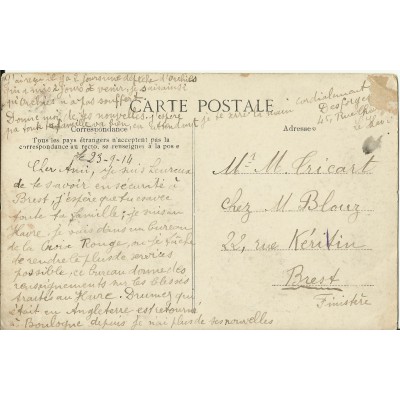 CARTE POSTALE
Correspondance
Tous les pays étrangers n'acceptent pas la
correspondance au recto, se renseigner à la poste
Adresse
cordialement
te serre la main
23-9-14
Cher Ami, je suis heureux
de te savoir en sécurité à
Brest, j'espère que tu es avec
toute ta famille; je suis au
Havre je suis dans un bureau de
la Croix Rouge, où je tâche
de rendre le plus de services
possible, ce bureau donne des
renseignements sur les blessés
traités au Havre. Drumez qui
était en Angleterre est retourné
à Boulogne depuis je n'ai plus de ses nouvelles
M. Cricart
chez M Blouz
22, rue Kérivin
Brest
Finistère